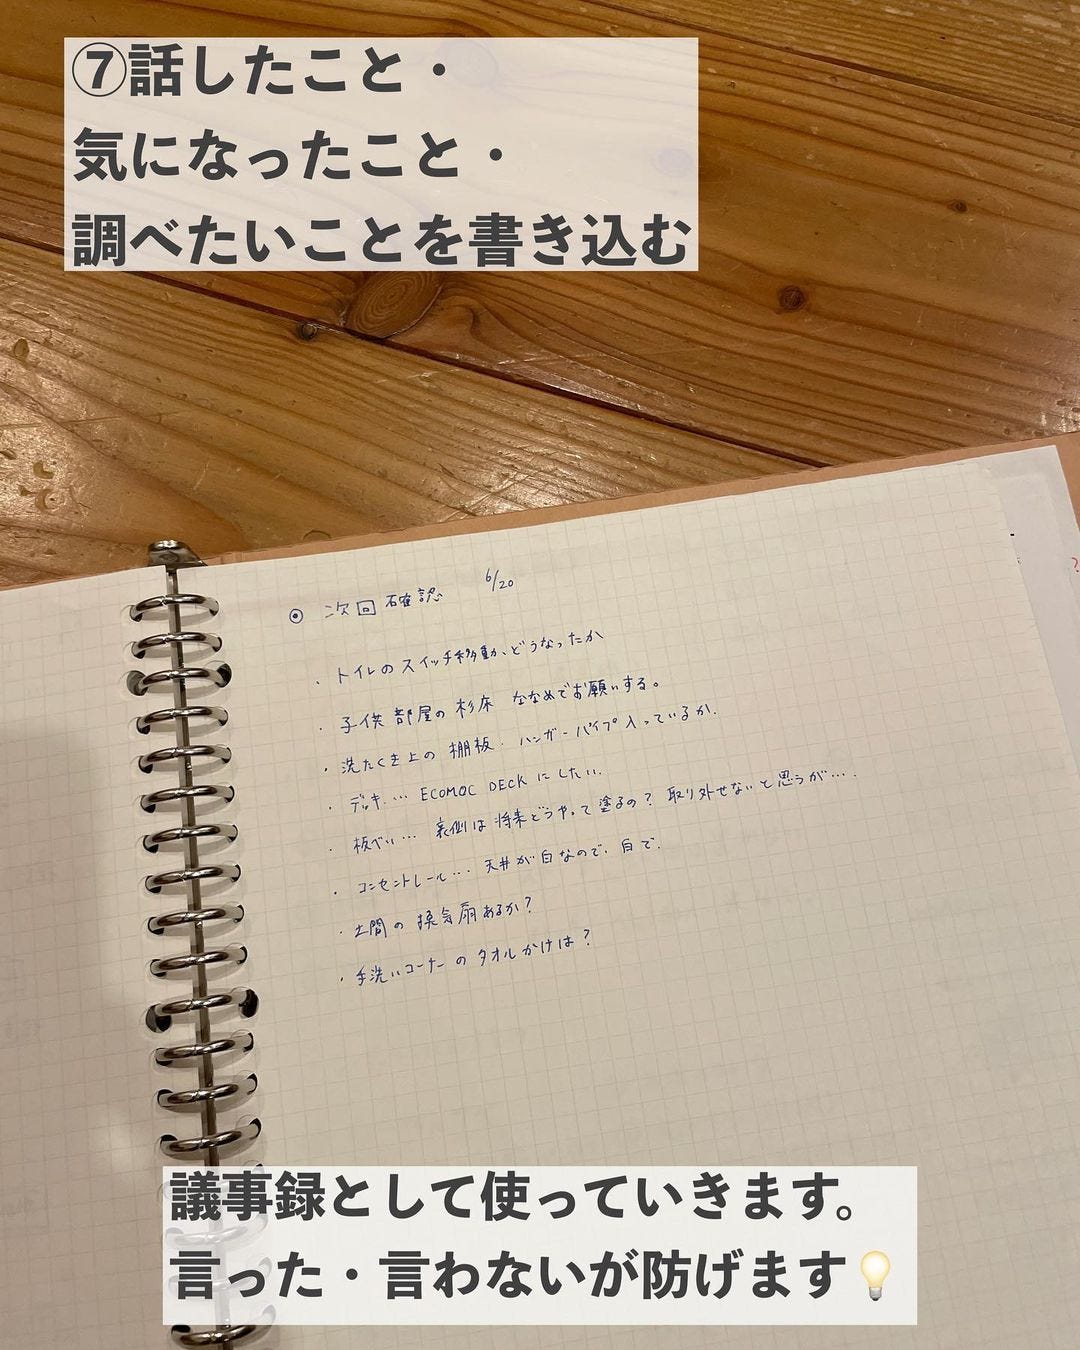 ⑦話したこと・
気になったこと・
調べたいことを書き込む
◉ 次回確認 6/20
・トイレのスイッチ移動、どうなったか
・子供部屋の杉床 ななめでお願いする。
・洗たくき上の棚板、ハンガーパイプ入っているか。
・デッキ… ECOMOC DECKにしたい。
・板べい… 裏側は将来どうやって塗るの？取り外せないと思うが…。
・コンセントレール… 天井が白なので、白で。
・土間の換気扇あるか？
・手洗いコーナーのタオルかけは？
?
議事録として使っていきます。
言った・言わないが防げます💡